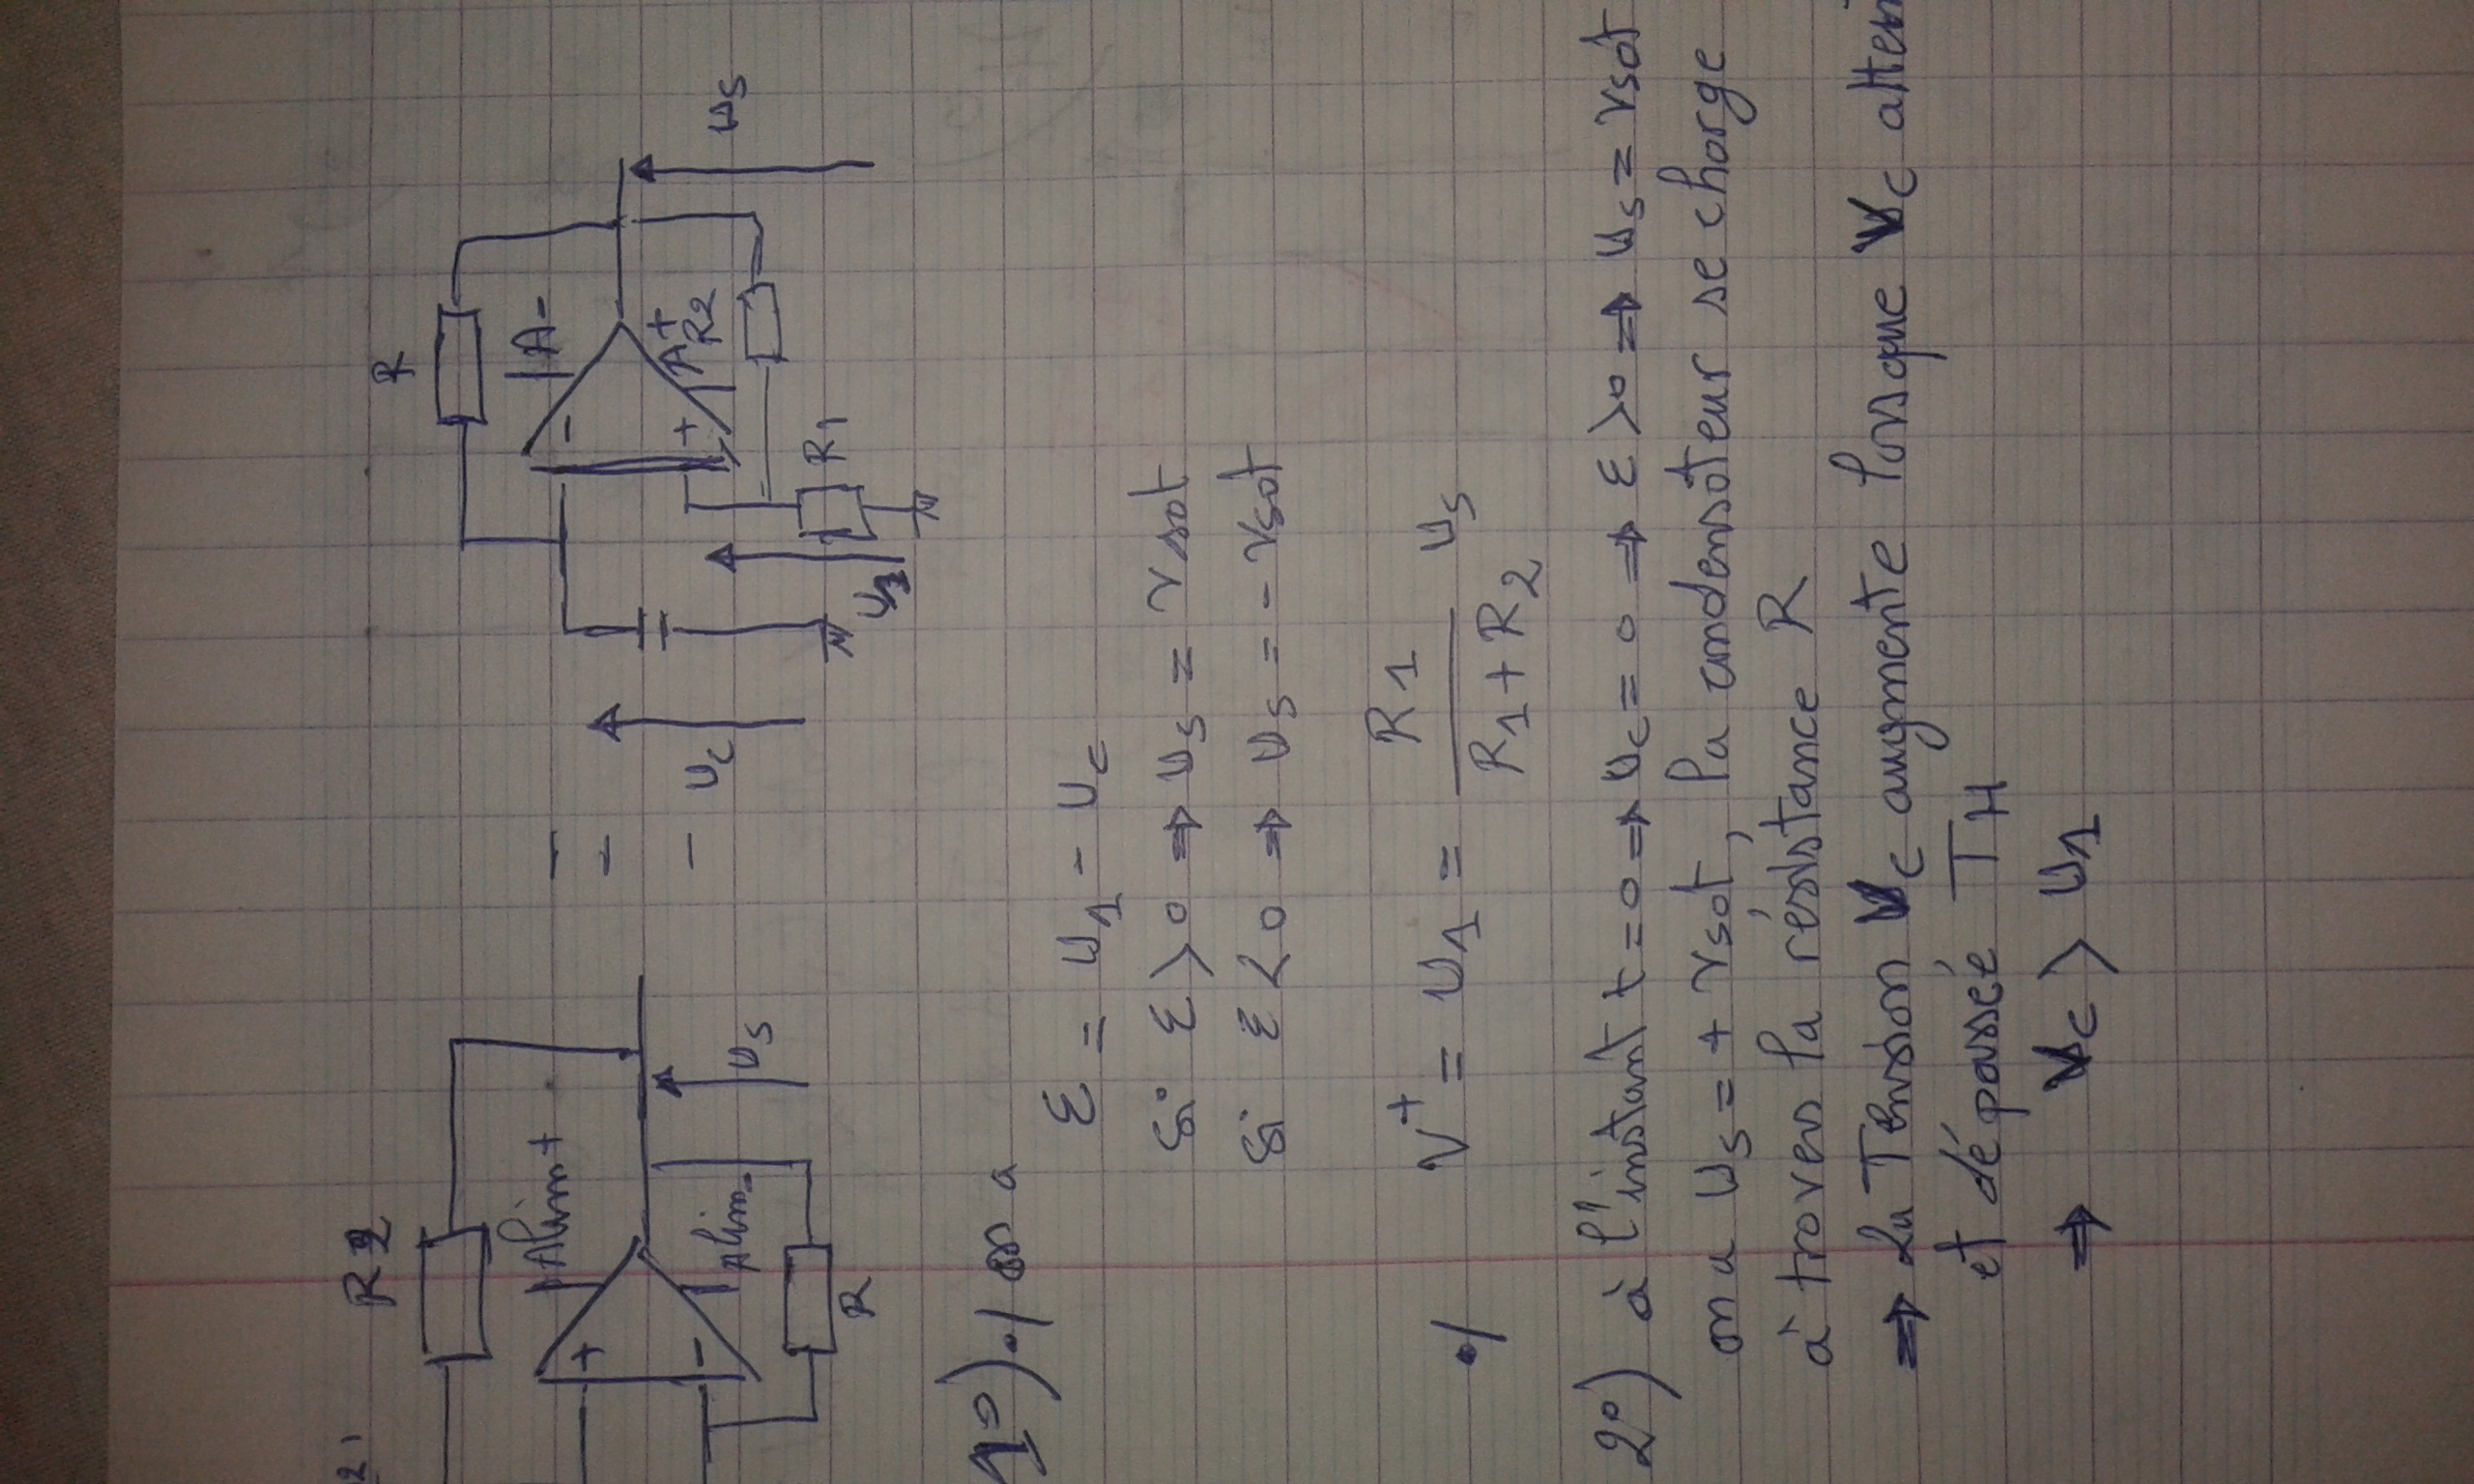 R2
Alim+
Alim-
us
R
R
A-
A+
R2
R1
us
uc
u1
1°) •/ on a
ε = u1 - uc
Si ε > 0 ⇒ us = vsat
Si ε < 0 ⇒ us = - vsat
•/ V+ = u1 = R1 / R1 + R2 us
2°) à l'instant t = 0 ⇒ uc = 0 ⇒ ε > 0 ⇒ us = vsat
on a us = + vsat, la condensateur se charge
à travers la résistance R
⇒ La Tension Vc augmente lorsque Vc attein
et dé passée TH
⇒ Vc > u1